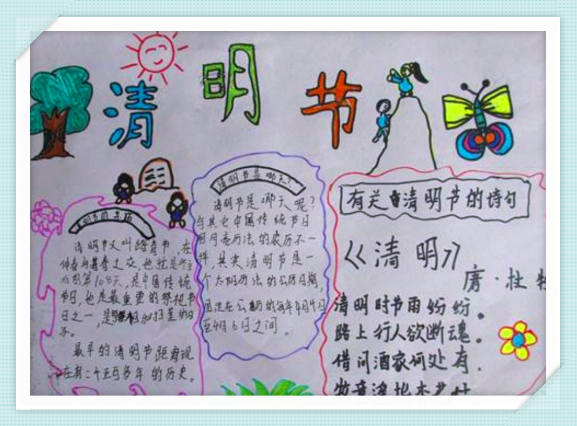 清明节
清明节是哪天?
清明节又叫踏青节,在
仲春与暮春之交,也就是冬至
后的第108天,是中国传统
节日,也是最重要的祭祀节
日之一,是和扫墓的日
子。
最早的清明节距离现
在有二千五百多年的历史。
清明节是哪天呢?
与其它中国传统节日
用农历不一
样,其实清明节是一
个公历日期,
在公历的每年4月4日
至4月6日之间。
有关清明节的诗句
《清明》
唐·杜牧
清明时节雨纷纷。
路上行人欲断魂。
借问酒家何处有.